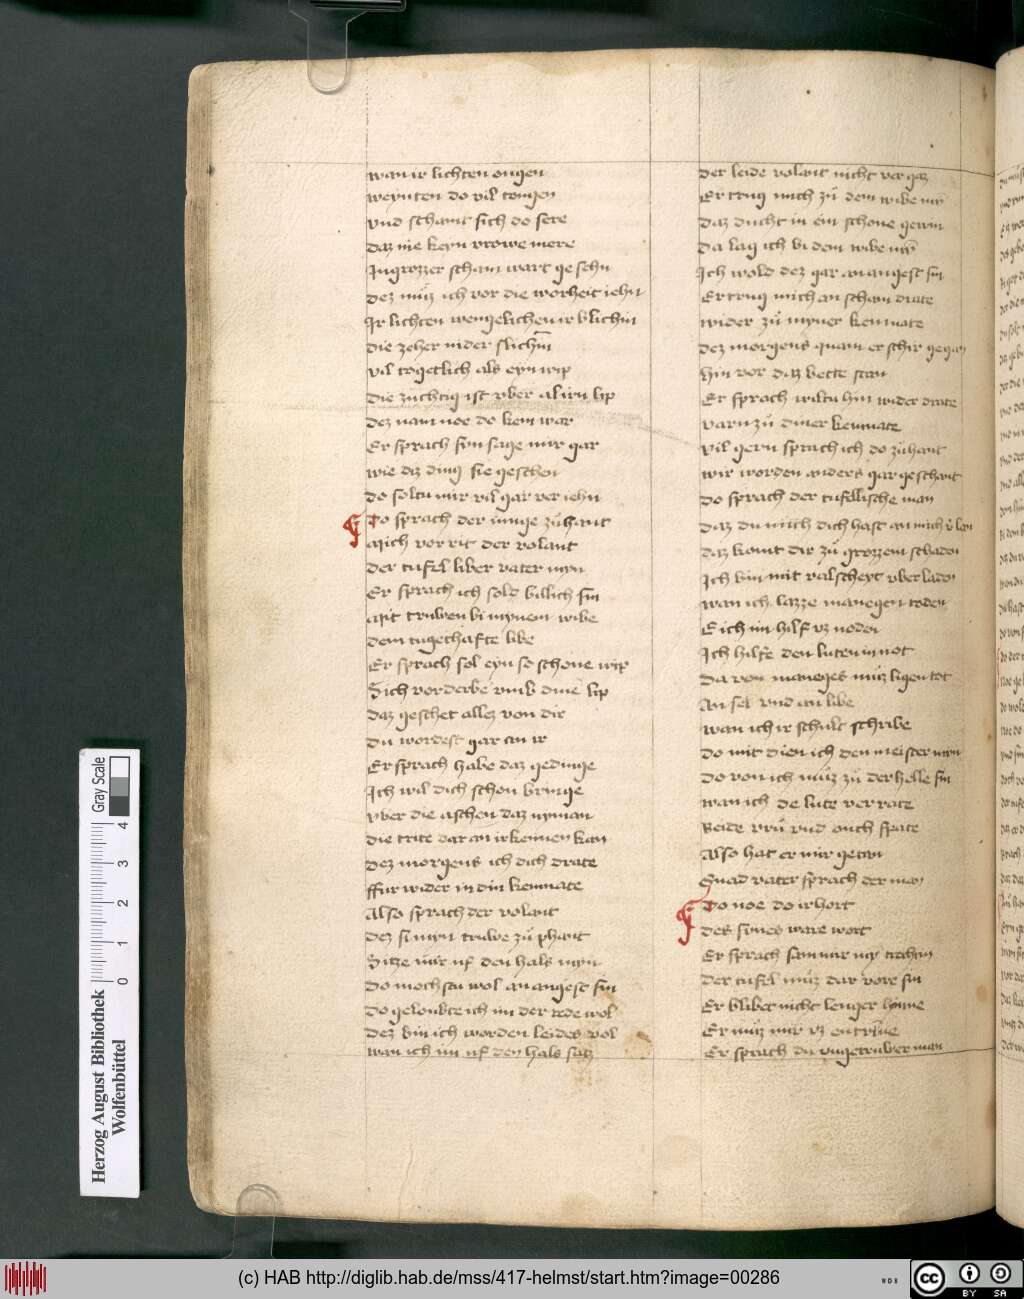 wan ir lichten ougen
weynten do vil tougen
vnd schamt sich do sere
daz nie keyn vrowe mere
In grozzer scham wart gesehn
Dez muz ich vor die worheit iehn
Ir lichten wengelichen irblichin
die zeher nider slichin
vil togetlich als eyn wip
die zuchtig ist vber al irn lip
Dez nam noe do kem war
Er sprach syn sage mir gar
wie diz ding sie geschen
do soltu mir vil gar veriehn
Do sprach der iunge zů hant
Mich vorrit der volant
der tufel liber vater myn
Er sprach ich sold billich sin
Mit truwen bi mynem wibe
dem tugethafte libe
Er sprach sol eyn so schone wip
Sich vorderbe vmb dine lip
daz geschet allez von dir
du wordest gar an ir
Er sprach habe daz gedinge
Ich wil dich schon bringe
vber die aschen daz nyman
die trite dar an irkennen kan
Dez morgens ich dich drate
ffur wider in din kemnate
Also sprach der volant
Dez si myn truwe zů phant
Sitze mir uf den hals myn
Do mochstu wol an angest sin
Do geloubte ich im der rede wol
Dez bin ich worden leides vol
wan ich im uf den hals saz
der leide volant nicht vergaz
Er trug mich zů dem wibe myn
Daz ducht in ein schone gewin
Da lag ich bi dem wibe myn
Ich wold dez gar an angest sin
Er trug mich an scham drate
wider zů myner kemnate
Dez morgens quam er schir gegan
Hin vor daz bette stan
Er sprach wiltu hin wider drate
varn zů diner kemnate
vil gern sprach ich do zu hant
wir worden anders gar geschant
Do sprach der tufellische man
Daz du mich dich hast an mich v'lan
daz komt dir zů grozzem schaden
Ich bin mit valscheyt vberladen
wan ich lazze manegen toden
E ich im hilf vz noden
Ich hilfe den luten in not
Da von maneges muz ligen tot
An sel vnd an libe
wan ich ir schult schribe
Do mit dien ich den meister myn
Do von ich muz zů der helle sin
wan ich de lute verrate
Beide vrů vnd ouch spate
Also hat er mir getan
Gnad vater sprach der man
Do noe do irhort
des sones ware wort
Er sprach sun mir myn trechtin
Der tufel muz dar vore sin
Er blibet nicht lenger hinne
Er muz mir vz entrinne
Er sprach du vngetruwer man
Herzog August Bibliothek
Wolfenbüttel
0 1 2 3 4
Gray Scale
(c) HAB http://diglib.hab.de/mss/417-helmst/start.htm?image=00286
WDB
cc BY SA